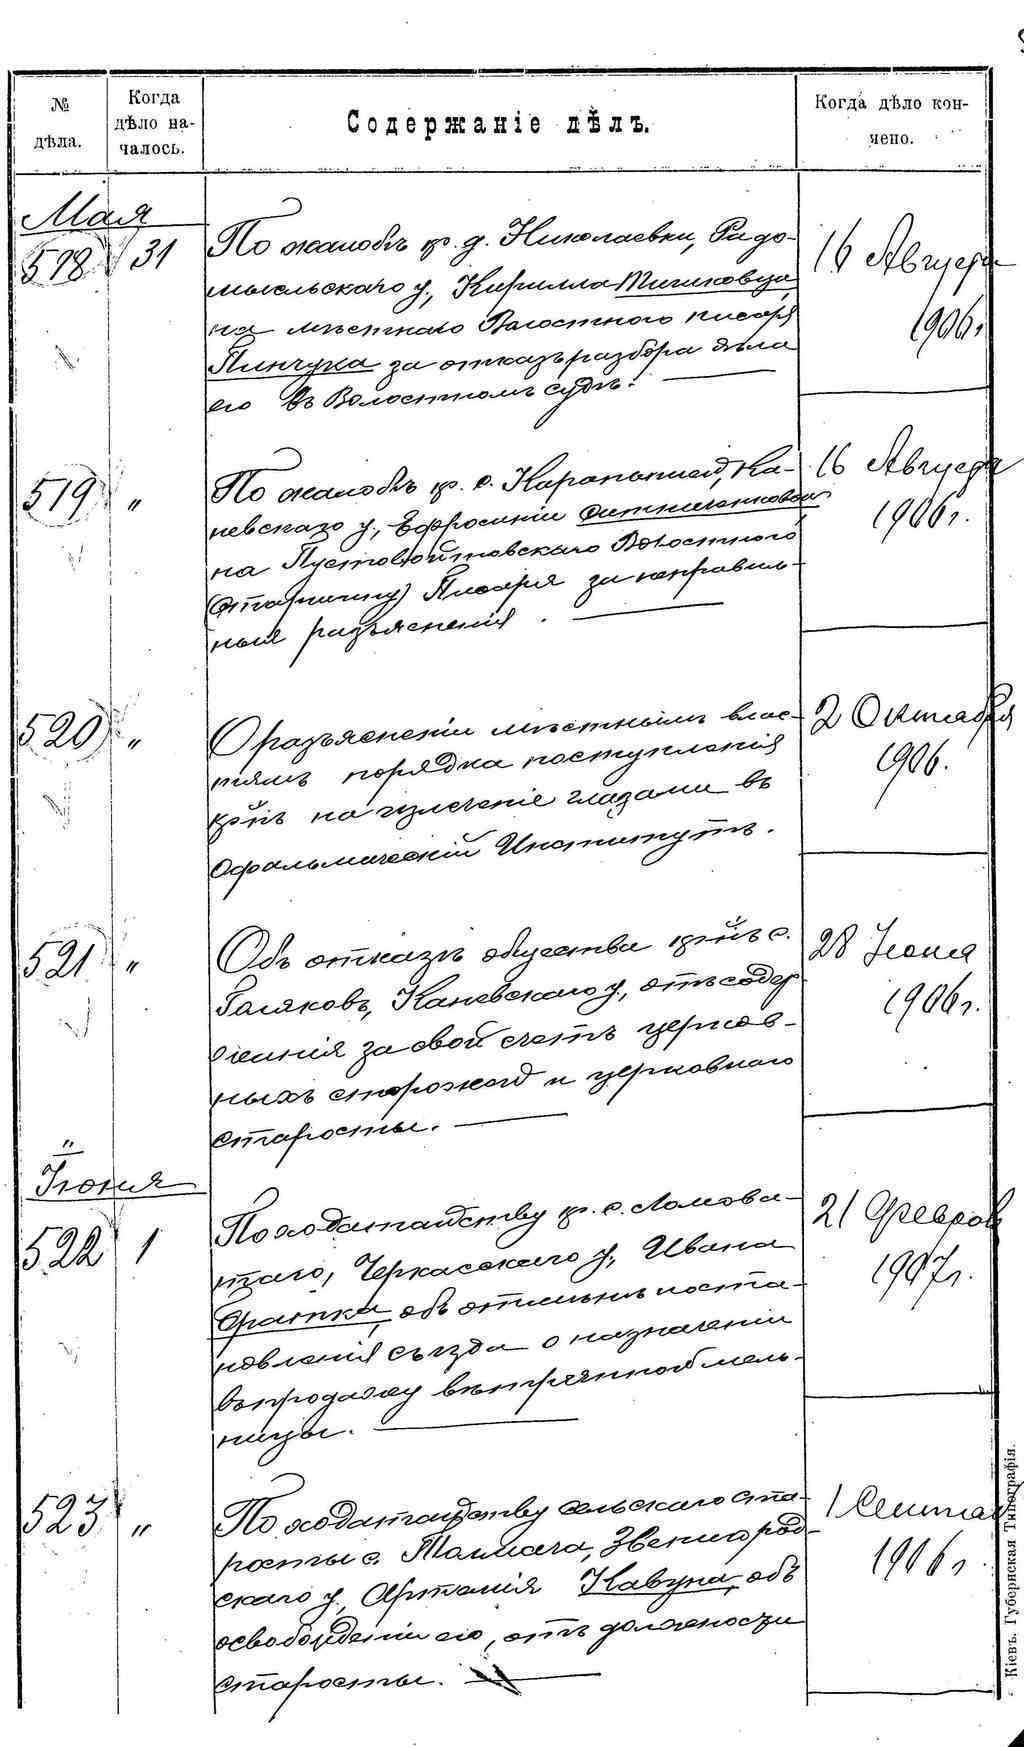 № дѣла.
Когда дѣло на-
чалось.
Содержаніе дѣлъ.
Когда дѣло кон-
чено.
Мая
518 31 По жалобѣ кр. д. Николаевки, Радо-
мысльскаго у., Кирилла
на мѣстнаго Волостного писаря
Пинчука за отказъ разбора дѣла
его въ Волостномъ судѣ.
16 Августа
1906г
519 " По жалобѣ кр. с. Карапышей, Ка-
невскаго у., Ефросиніи Ситниченковой
на Пустовойтовскаго Волостного
(старшину) Писаря за неправиль-
ныя разъясненія.
16 Августа
1906г.
520 " О разъясненіи мѣстнымъ влас-
тямъ порядка поступленія
кр҃нъ на излеченіе глазами въ
Офтальмическій Институтъ.
2 Октября
1906.
521 " Объ отказѣ общества кр҃нъ с.
Голяковъ, Каневскаго у., отъ содер
жанія за свой счетъ церков-
ныхъ сторожей и церковнаго
старосты.
28 Іюня
1906г.
"
Іюня
522 1 По ходатайству кр. с. Ломова-
таго, Черкасскаго у., Ивана
объ отмѣнѣ поста-
новленія съѣзда о назначеніи
въ продажу вѣтряной мель-
ницы.
21 Феврал
1907г.
523 " По ходатайству сельскаго ста-
росты с. Толмача, Звенигород-
скаго у., Артемія Кавуна, объ
освобожденіи его, отъ должности
старосты.
1 Сентяб
1906г
Кіевъ. Губернская Типографія.